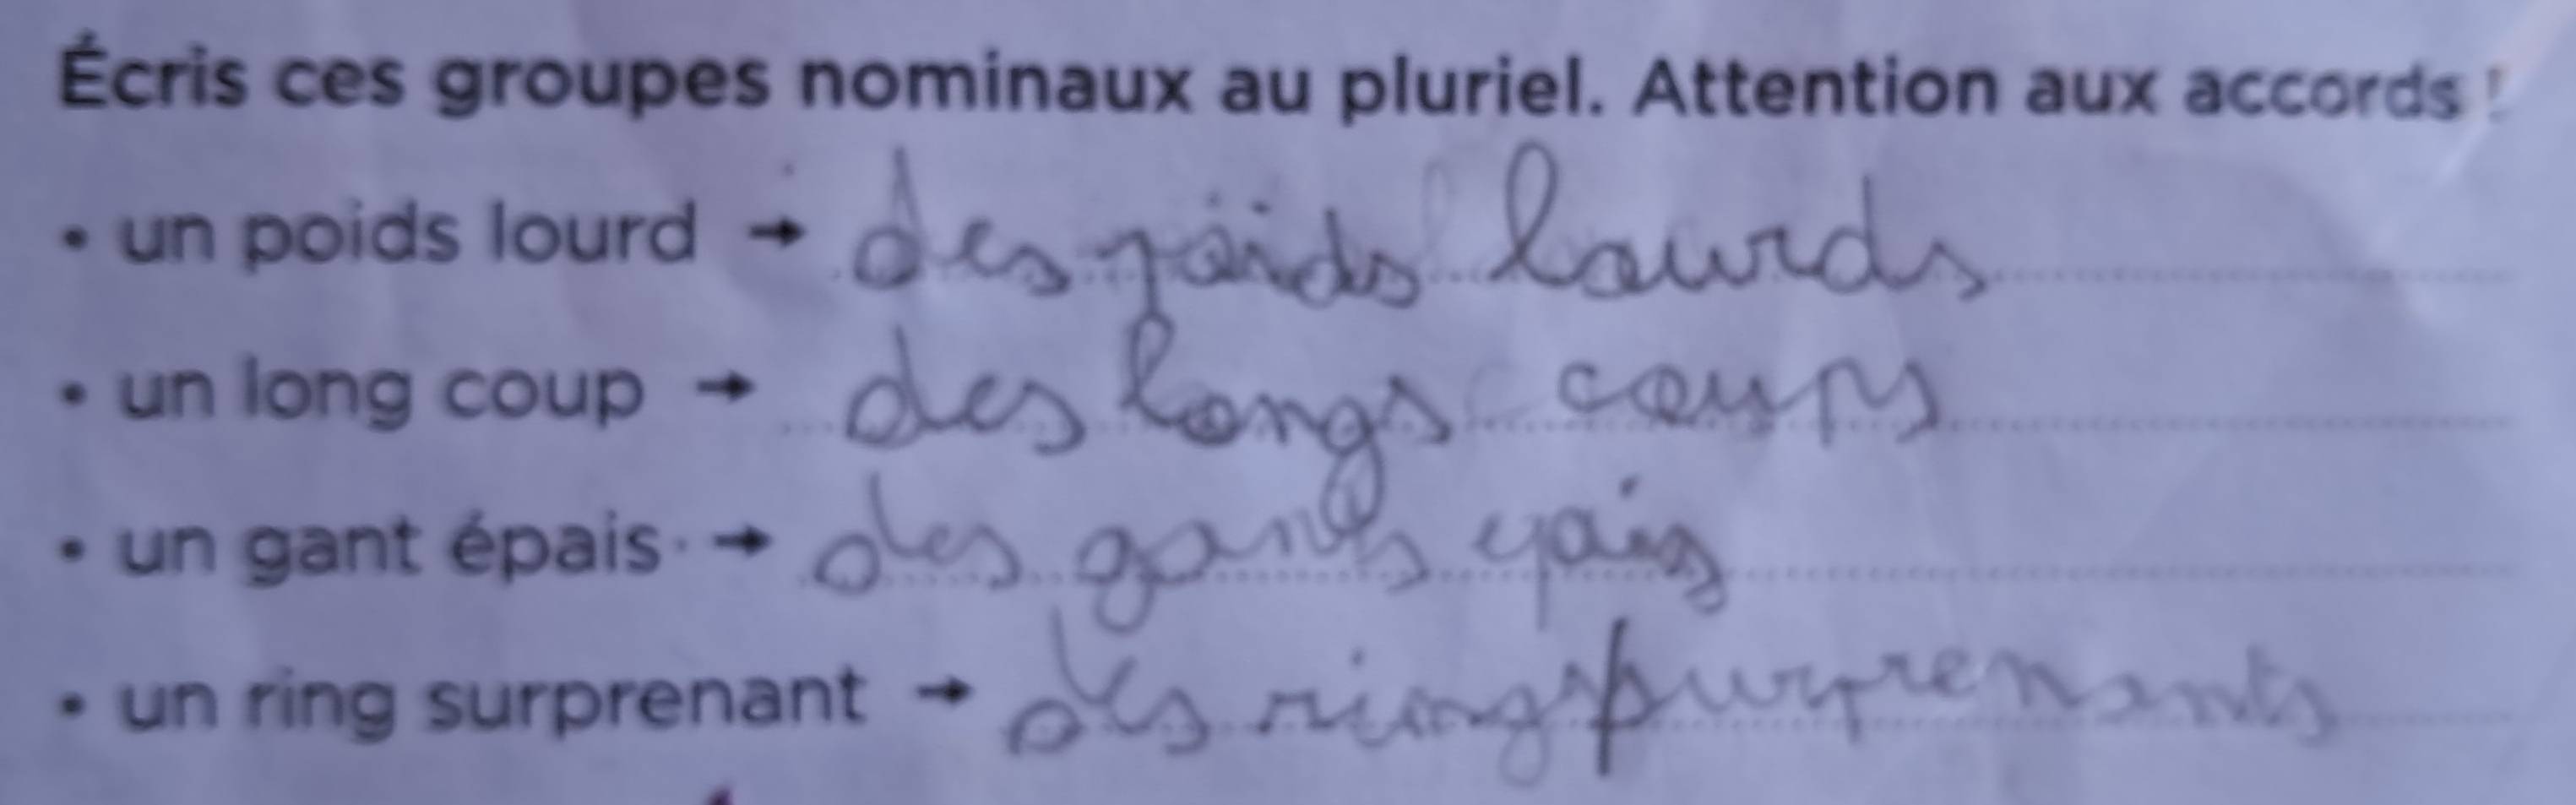 Écris ces groupes nominaux au pluriel. Attention aux accords !
• un poids lourd → des poids lourds
• un long coup → des longs coups
• un gant épais → des gants epais
• un ring surprenant → des rings surprenants